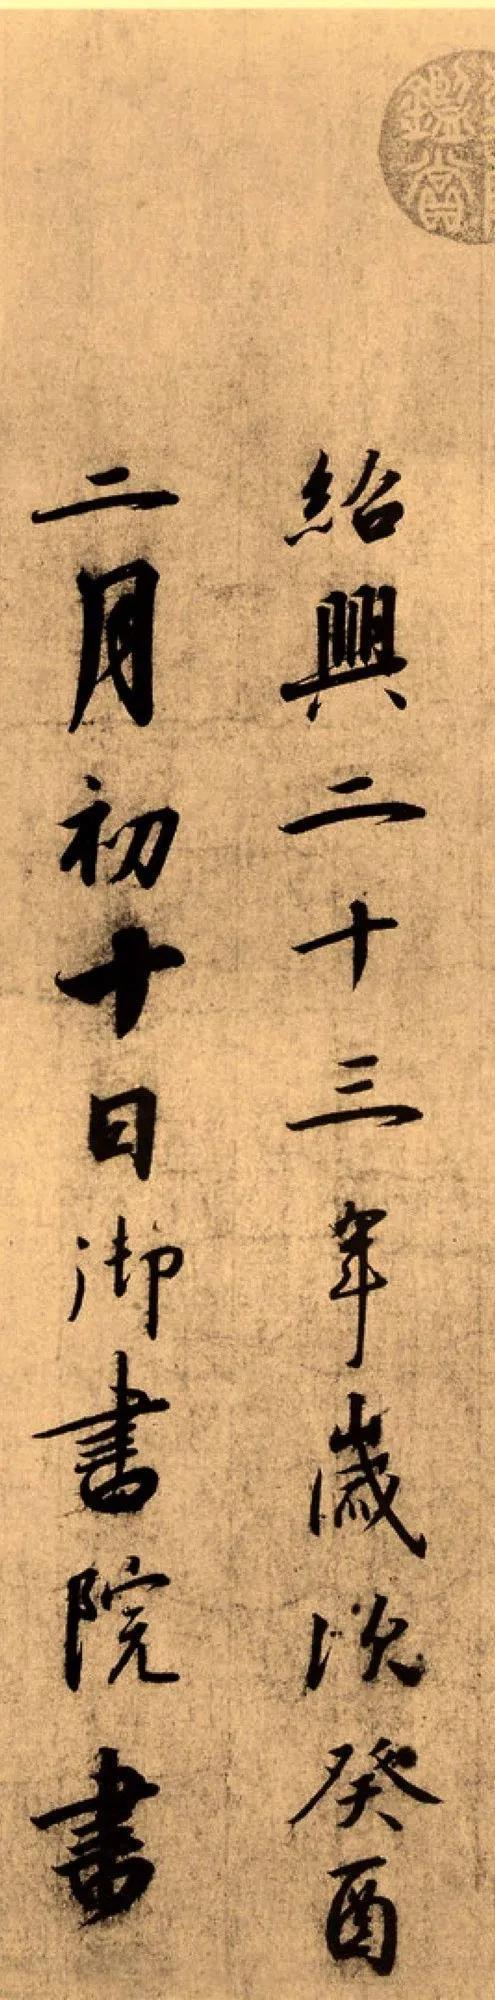 紹興二十三年歲次癸酉
二月初十日御書院書
鑑賞